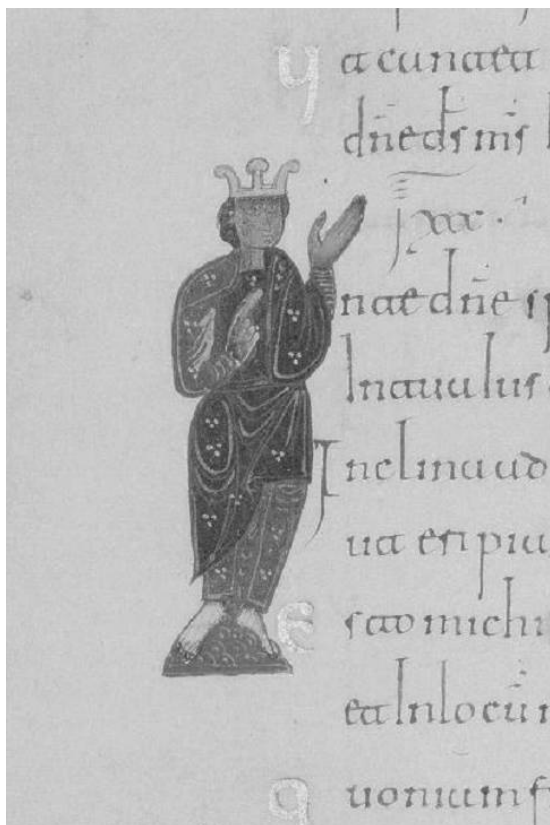 Ut cantet
dn̄e ds̄ ms̄
xxx
n te dn̄e sp
In tua ius
Inclina ad
ut eripia
esto michi
et In locū
quoniam f